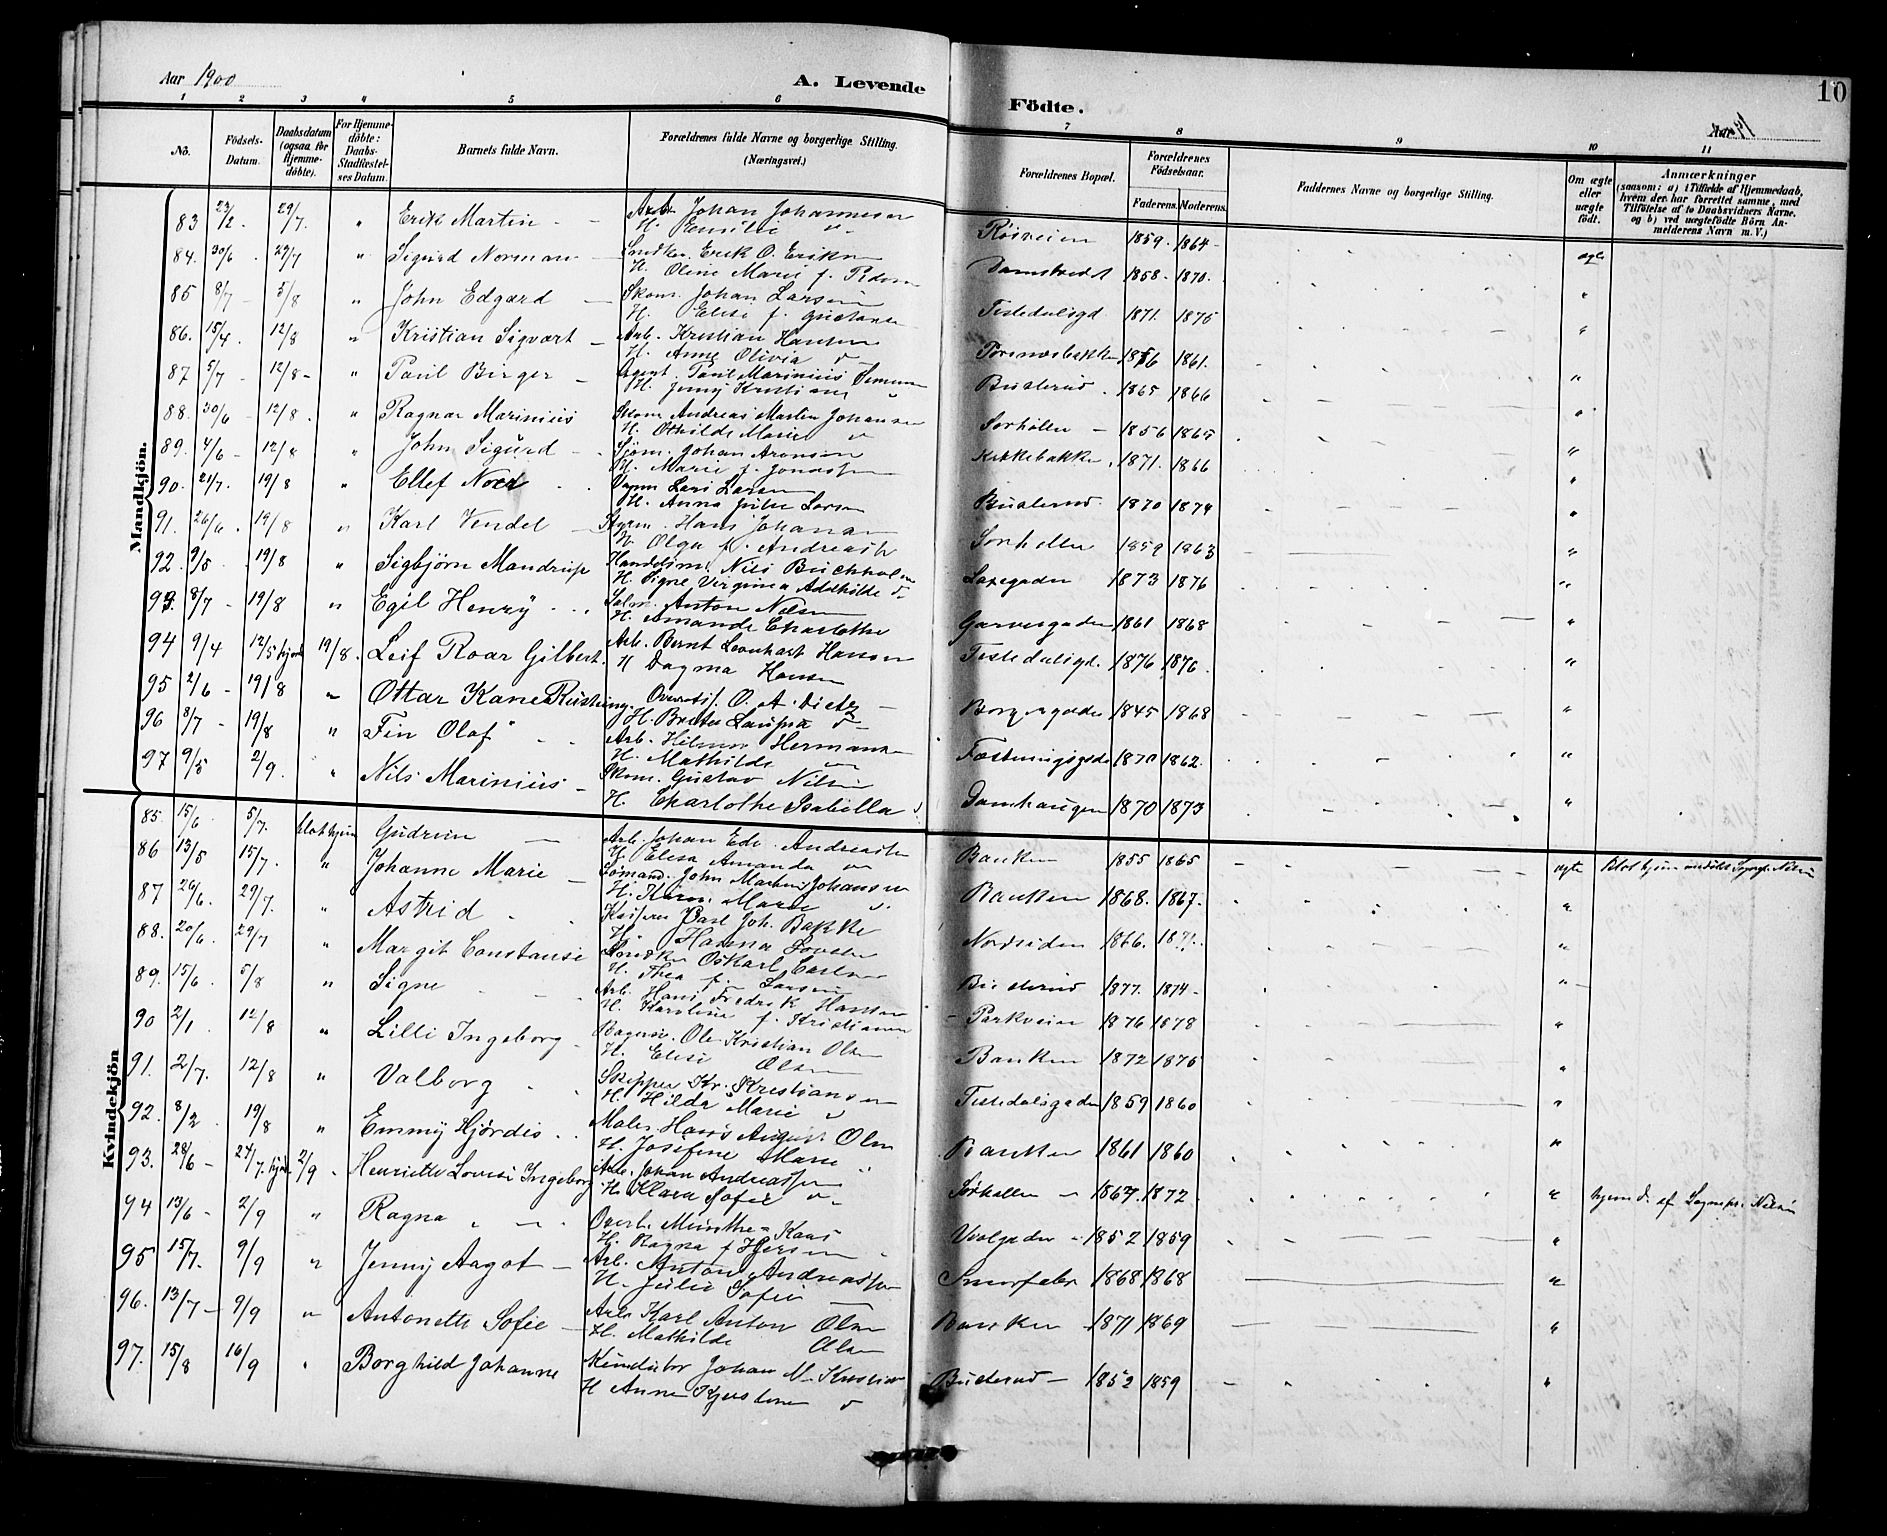 Aar 1900
A. Levende
Födte.
10
Aar
1 2 3 4 5 6 7 8 9 10 11
No.
Födsels-Datum.
Daabsdatum (ogsaa for Hjemme-döbte).
For Hjemme-döbte: Daabs-Stadfæstel-ses Datum.
Barnets fulde Navn.
Forældrenes fulde Navne og borgerlige Stilling. (Næringsvei.)
Forældrenes Bopæl.
Forældrenes Födselsaar.
Faderens. Moderens.
Faddernes Navne og borgerlige Stilling.
Om ægte eller uægte födt.
Anmærkninger (saasom: a) i Tilfælde af Hjemmedaab, hvem der har forrettet samme, med Tilföielse af to Daabsvidners Navne, og b) ved uægtefödte Börn An-melderens Navn m. V.)
Mandkjön.
83 23/2. 29/7. " Erik Martin Arb. Johan Johannesen Röisveien 1859. 1864 ægte
H. Emilie
84. 30/6 29/7 " Sigurd Norman Snedker. Erik O. Eriksen Damstrædet 1858. 1870.
H. Oline Marie f.
85 8/7 5/8 " John Edgard Skom. Johan Larsen Tistedalsgd 1871. 1875
H. Elise f. Gustavsen
86. 15/4. 12/8 " Kristian Sigvart Arb. Kristian Hansen 1856 1861.
H. Anne Olivia
87 5/7 12/8 " Paul Birger Agent. Paul Marinius Simensen Busterud 1865 1866
H. Jenny Kristiane
88. 30/6 12/8. " Ragnar Marinius Skom. Andreas Martin Johansen Sörhalen 1856 1865
H. Othilde Marie
89. 4/6 12/8 " John Sigurd Sjöm. Johan Aronsen Kirkebakken 1871. 1866
H. Marie f. Jonassen
90. 21/7. 19/8 " Ellef Noel Lars Larsen Busterud 1870 1874
H. Anna Julie Larsen
91. 26/6. 19/8 " Karl Vendel Styrm. Hans Johansen Sörhallen 1859 1863
H. Olga f. Andreassen
92. 9/5 19/8 " Sigbjörn Mandrup Handelsm. Nils Buchholm 1873 1876
H. Signe Virginia Adelhilde
93. 8/7 19/8 " Egil Henry Anton Nilsen Garvergaden 1861 1868
H. Amanda Charlotte
94 9/4 12/5 hjem 19/8. Leif Roar Gilbert. Arb. Bernt Leonhart Hansen Tistedalsgd. 1876 1876
H Dagma Hansen
95 2/6 19/8 " Ottar Kane Rustung O. A. Dietz Borgergaden 1845 1868
H. Laura
96 8/7 19/8 " Fin Olaf Arb. Hilmar Hermansen Fæstningsgaden 1870 1862.
H. Mathilde
97 9/5 2/9. " Nils Marinius Skom. Gustav Nilsen Damhaugen 1870 1873
H. Charlotte Isabella
Kvindekjön
85. 15/6 5/7. Gudrun Arb. Johan Edv. Andreassen Banken 1855 1865 ægte
H. Elisa Amanda
86 13/5 15/7. " Johanne Marie Sömand. John Martin Johansen Banken 1868. 1867.
H. Karen Marie
87 26/6. 29/7. " Astrid Carl Joh. Bakke Nordsiden 1866. 1871.
H. Hanna Lovise
88. 20/6. 29/7 " Margit Constanse Snedker Oskarl Carlsen Busterud 1877. 1874
H. Thea f. Larsen
89. 15/6 5/8 " Signe Arb. Hans Fredrik Hansen Parkveien 1876 1878
H. Karoline f. Kristiansen
90 2/1. 12/8 " Lilli Ingeborg Bagersv. Ole Kristian Olsen Banken 1872 1875
H. Elise Olsen
91. 2/7. 12/8 " Valborg Skipper Kr. Kristiansen Tistedalsgaden 1859 1860
H. Hilda Marie
92. 8/2 19/8 " Emmy Hjördis Maler Hans August Olsen Banken 1861 1860
H. Josefine Marie
93. 28/6 24/7. hjem 2/9 Henriette Lovise Ingeborg Arb. Johan Andreassen Sörhallen 1867. 1872. hjemd. af Sognepr. Nilsen
H. Klara Sofie
94 13/6 2/9 " Ragna Overl. Munthe-Kaas Violgaden 1852 1859
H. Ragna f.
95 15/7. 9/9 " Jenny Aagot Arb. Anton Andreassen 1868 1868
H. Julie Sofie
96. 13/7 9/9 " Antonette Sofie Arb. Karl Anton Olsen Banken 1871 1869
H. Mathilde Olsen
97. 15/8 16/9 " Borghild Johanne Johan M. Kristiansen Busterud 1852 1859
H Anne Kjerstine